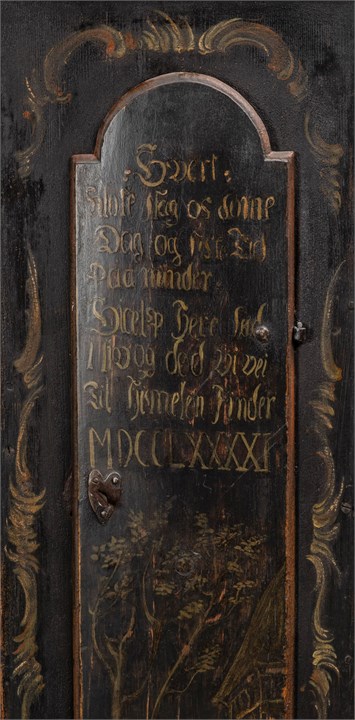 Hvert
slag os donne
Dag og Tid
paa minder.
Hielp Herre
I liv og død vi vei
til Himelen finder
MDCCLXXXXI